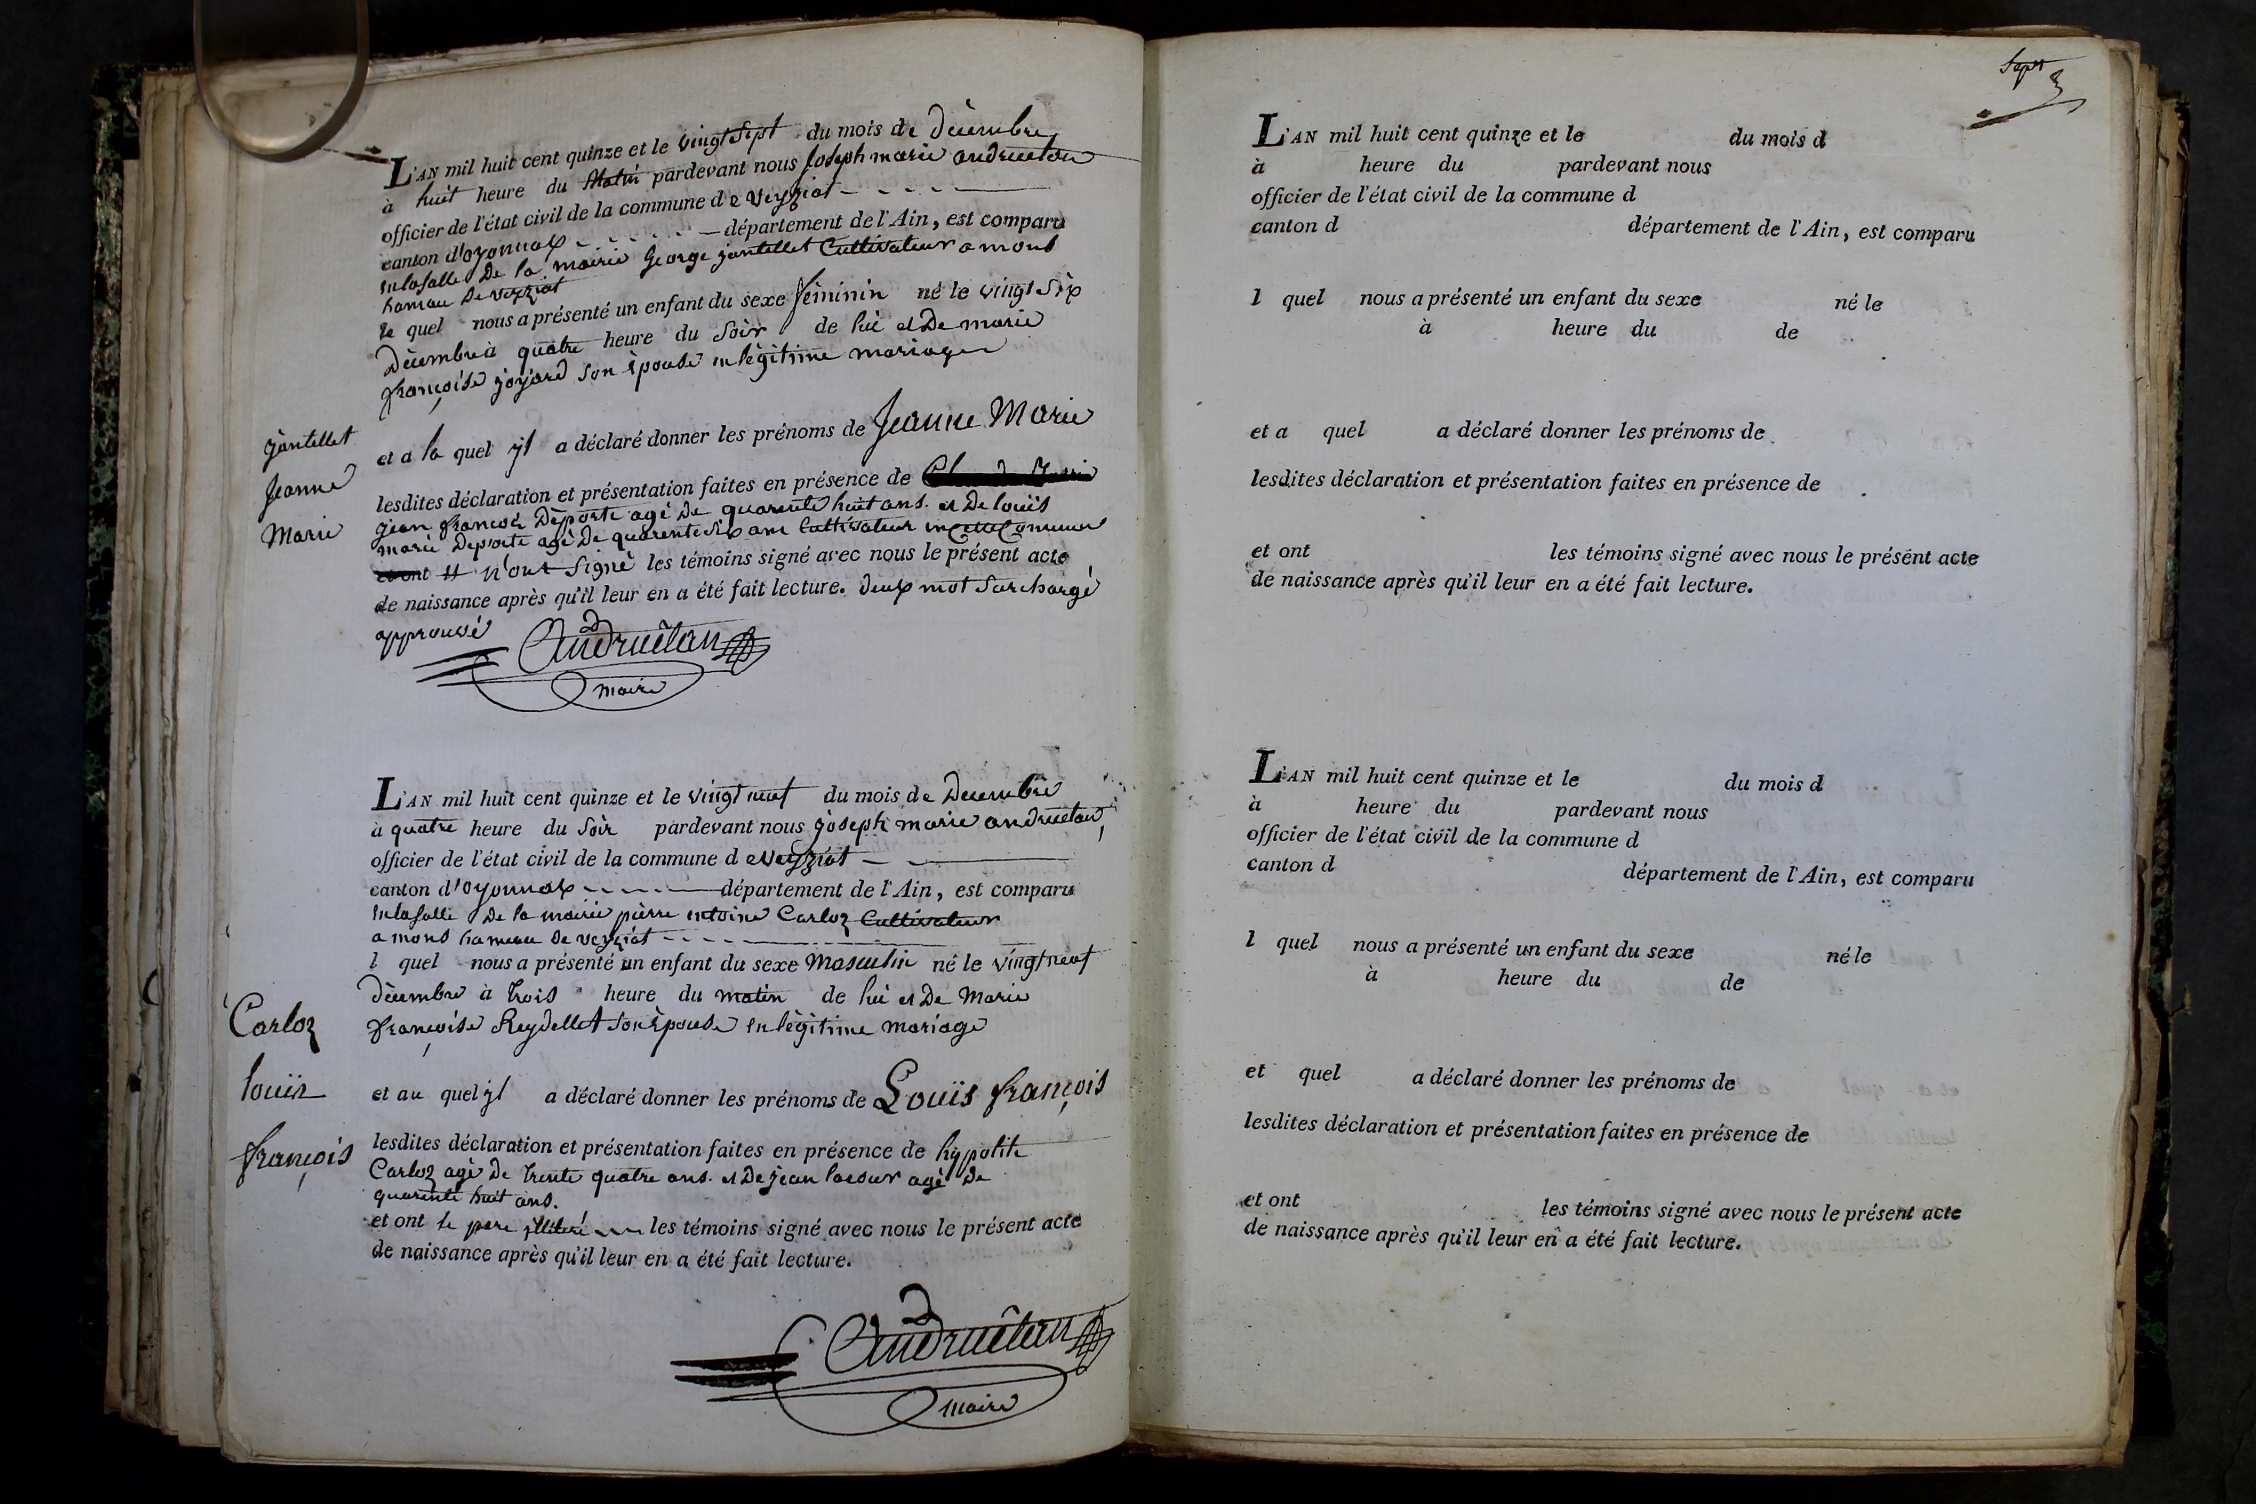 L'AN mil huit cent quinze et le vingt Sept du mois de décembre
à huit heure du Matin pardevant nous Joseph marie andruétan
officier de l'état civil de la commune de Veyziat
canton d'oyonnax département de l'Ain, est comparu
en la salle De la mairie George jantellet Cultivateur a mons
hameau De veyziat
le quel nous a présenté un enfant du sexe féminin né le vingt Six
Décembre à quatre heure du Soir de lui et De marie
françoise joyard son épouse en légitime mariage
jantellet
Jeanne
Marie
et a la quel yl a déclaré donner les prénoms de Jeanne Marie
lesdites déclaration et présentation faites en présence de
jean françois Déporte agé De quarente huit ans. et De louïs
marie Deporte agé De quarente Six ans Cultivateur en Cette Commune
et ont n'ont Signé les témoins signé avec nous le présent acte
de naissance après qu'il leur en a été fait lecture. deux mot Surchargé
approuvé
Andruétan
maire
L'AN mil huit cent quinze et le vingt neuf du mois de Decembre
à quatre heure du Soir pardevant nous joseph marie andruétan
officier de l'état civil de la commune de Veyziat
canton d'oyonnax département de l'Ain, est comparu
en la salle De la mairie pierre entoine Carloz Cultivateur
a mons hameau De veyziat
l quel nous a présenté un enfant du sexe Masculin né le vingt neuf
décembre à trois heure du matin de lui et De Marie
françoise Reydellet son épouse en légitime mariage
Carloz
louïs
françois
et au quel yl a déclaré donner les prénoms de Louïs françois
lesdites déclaration et présentation faites en présence de hypolite
Carloz agé De trente quatre ans. et De jean agé De
quarente huit ans.
et ont le pere les témoins signé avec nous le présent acte
de naissance après qu'il leur en a été fait lecture.
Andruétan
maire
Sept
L'AN mil huit cent quinze et le du mois d
à heure du pardevant nous
officier de l'état civil de la commune d
canton d département de l'Ain, est comparu
l quel nous a présenté un enfant du sexe né le
à heure du de
et a quel a déclaré donner les prénoms de
lesdites déclaration et présentation faites en présence de
et ont les témoins signé avec nous le présent acte
de naissance après qu'il leur en a été fait lecture.
L'AN mil huit cent quinze et le du mois d
à heure du pardevant nous
officier de l'état civil de la commune d
canton d département de l'Ain, est comparu
l quel nous a présenté un enfant du sexe né le
à heure du de
et quel a déclaré donner les prénoms de
lesdites déclaration et présentation faites en présence de
et ont les témoins signé avec nous le présent acte
de naissance après qu'il leur en a été fait lecture.